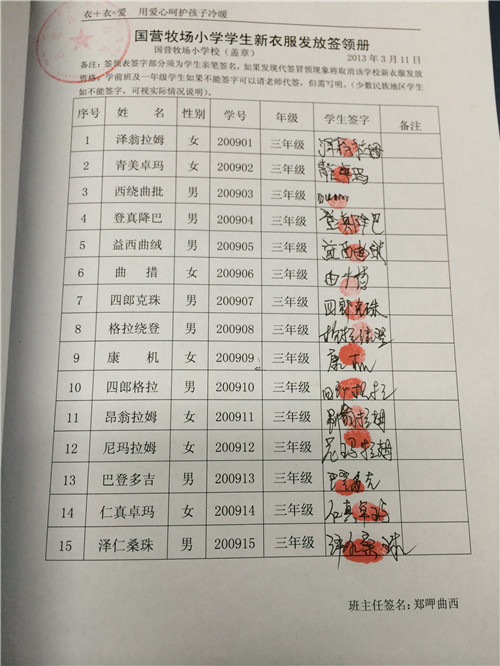 衣＋衣=爱　用爱心呵护孩子冷暖
国营牧场小学学生新衣服发放签领册
国营牧场小学校（盖章）　2013 年 3 月 11 日
备注：签领表签字部分须为学生亲笔签名，如果发现代签冒领现象将取消该学校新衣服发放
资格。学前班及一年级学生如果不能签字可以请老师代签，但需写明。（少数民族地区学生
如不能签字，可视实际情况说明）。
序号 姓 名 性别 学号 年级 学生签字 备注
1 泽翁拉姆 女 200901 三年级 泽翁拉姆
2 青美卓玛 女 200902 三年级
3 西绕曲批 男 200903 三年级
4 登真降巴 男 200904 三年级 登真降巴
5 益西曲绒 男 200905 三年级 益西曲绒
6 曲 措 女 200906 三年级
7 四郎克珠 男 200907 三年级 四郎克珠
8 格拉绕登 男 200908 三年级 格拉绕登
9 康 机 女 200909 三年级 康机
10 四郎格拉 男 200910 三年级 四郎格拉
11 昂翁拉姆 女 200911 三年级 昂翁拉姆
12 尼玛拉姆 女 200912 三年级 尼玛拉姆
13 巴登多吉 男 200913 三年级
14 仁真卓玛 女 200914 三年级 仁真卓玛
15 泽仁桑珠 男 200915 三年级 泽仁桑珠
班主任签名：郑呷曲西